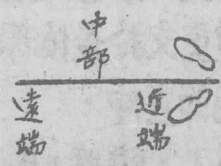 中部
遠端
近端